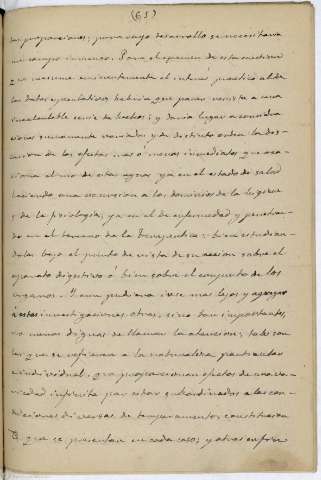 (65)
las proporciones, para cuyo desarrollo se necesitaria
un campo inmenso. Para el examen de esta materia
que reasume eminentemente el interes practico al de
los datos especulativos habria que pasar revista a una
incalculable serie de hechos; y daria lugar a considera
ciones sumamente variadas y de distinto orden la des-
cripcion de los efectos mas ó menos inmediatos que oca-
siona el uso de estas aguas ya en el estado de salud
haciendo una escursion a los dominios de la higiene
y de la fisiologia, ya en el de enfermedad y penetran-
do en el terreno de la terapeutica: bien estudian-
dolas bajo el punto de vista de su accion sobre el
aparato digestivo ó bien sobre el conjunto de los
organos. Y aun pudiera irse mas lejos y agregar
a estas investigaciones otras, sino tan importantes,
no menos dignas de llamar la atencion; tales son
las que se refieren a la naturaleza particular
e individual, que proporcionan efectos de una va-
riedad infinita por estar subordinados a las con-
diciones diversas de temperamento, constitucion
&. que se presentan en cada caso; y otras en fin